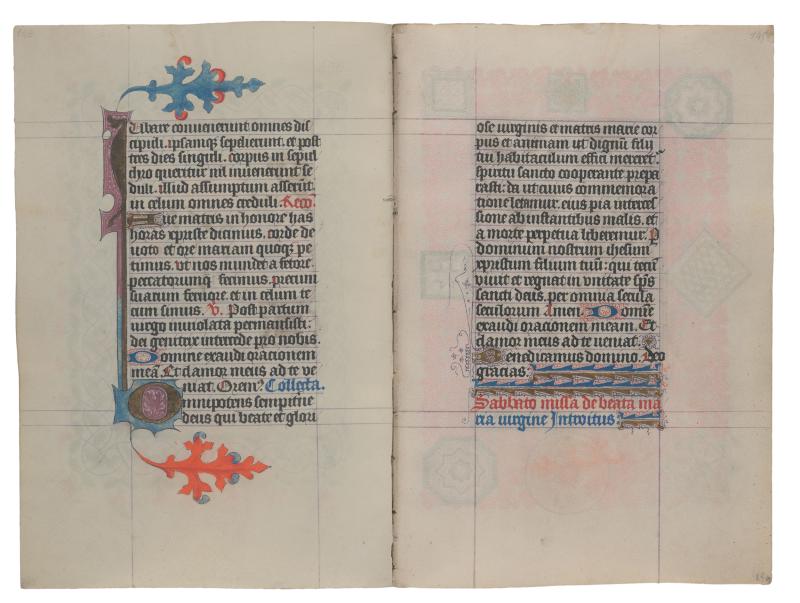 Tibare convenerunt omnes dis
cipuli. ipsamque sepelierunt. et post
tres dies singuli. corpus in sepul
chro queritur nil invenerunt se
duli. illud assumptum asserunt
in celum omnes creduli. Reco.
ue matris in honore has
horas xpriste dicimus. corde de
uoto et ore mariam quoque pe
timus. ut nos mundet a fetore
peccatorumque ferimus. precum
suarum et in celum te
cum simus. V. Post partum
uirgo inuiolata permansisti:
dei genitrix intercede pro nobis.
Domine exaudi oracionem
meam Et clamor meus ad te ve
niat. Orem? Collecta.
Omnipotens sempitne
deus qui beate et glori
ose uirginis et matris marie cor
pus et animam ut dignum filij
tui habitaculum effici meretur
spiritu sancto cooperante prepa
rasti: da ut cuius commemora
tione letamur. eius pia interces
sione ab instantibus malis. et
a morte perpetua liberemur. P
dominum nostrum ihesum
xpristum filium tuum: qui tecum
uiuit et regnat in vnitate sps
sancti deus. per omnia secula
seculorum. Amen. Domine
exaudi oracionem meam. Et
clamor meus ad te ueniat.
Benedicamus domino. Deo
gracias.
Sabbato missa de beata ma
ria uirgine Introitus